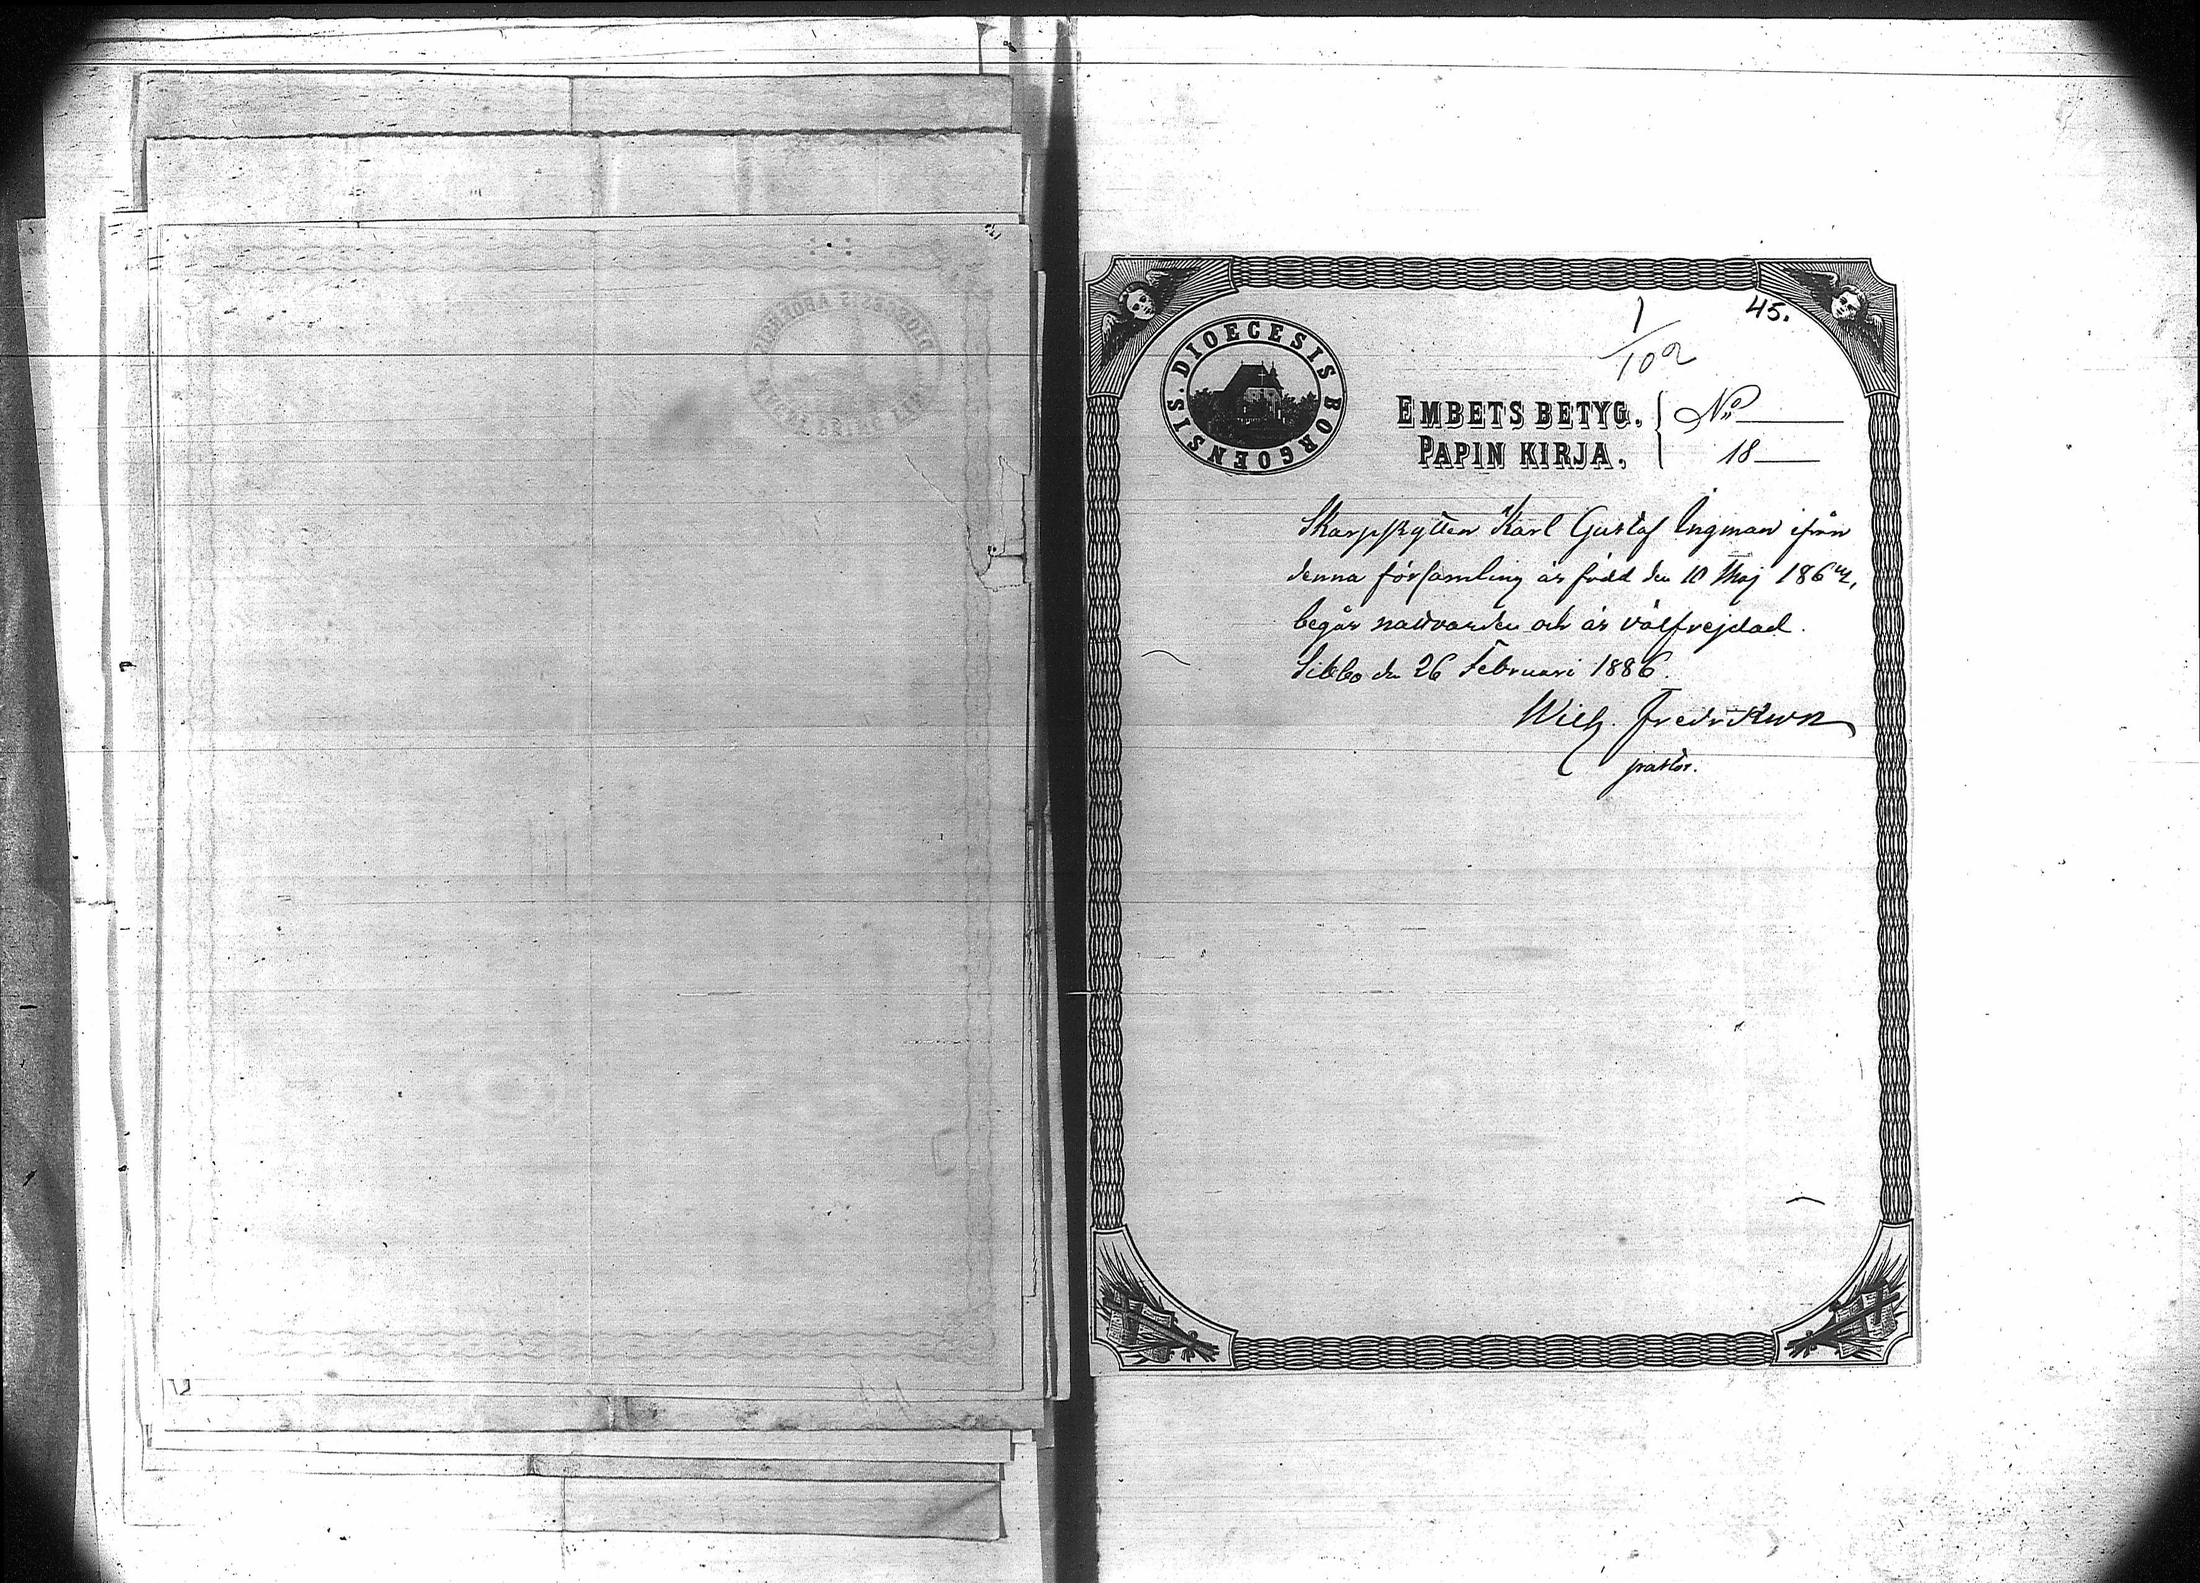 45.
1
102
DIOECESIS BORGOENSIS.
EMBETS BETYG.
PAPIN KIRJA.
No
18
Skarpskytten Karl Gustaf Ingman ifrån
denna församling är född den 10 Maj 1864,
begår nattvarden och är välfrejdad.
Sibbo den 26 Februari 1886.
Wilh. Fredrikson
pastor.